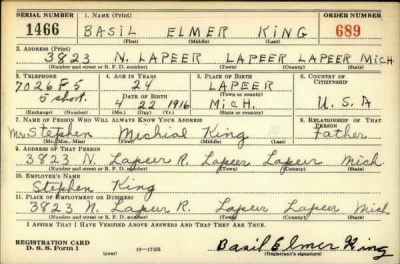 SERIAL NUMBER 1. NAME (Print) ORDER NUMBER
1466 BASIL ELMER KING 689
(First) (Middle) (Last)
2. ADDRESS (Print)
3823 N. LAPEER LAPEER LAPEER MICH
(Number and street or R. F. D. number) (Town) (County) (State)
3. TELEPHONE 4. AGE IN YEARS 5. PLACE OF BIRTH 6. COUNTRY OF CITIZENSHIP
7026F5 24 LAPEER
(Town or county)
DATE OF BIRTH
5 short 4 22 1916 MICH. U.S.A
(Mo.) (Day) (Yr.) (State or country)
7. NAME OF PERSON WHO WILL ALWAYS KNOW YOUR ADDRESS 8. RELATIONSHIP OF THAT PERSON
Mr. Stephen Michial King Father
(Mr., Mrs., Miss) (First) (Middle) (Last)
9. ADDRESS OF THAT PERSON
3823 N. Lapeer R. Lapeer Lapeer Mich
(Number and street or R. F. D. number) (Town) (County) (State)
10. EMPLOYER'S NAME
Stephen King
11. PLACE OF EMPLOYMENT OR BUSINESS
3823 N. Lapeer R. Lapeer Lapeer Mich
(Number and street or R. F. D. number) (Town) (County) (State)
I AFFIRM THAT I HAVE VERIFIED ABOVE ANSWERS AND THAT THEY ARE TRUE.
REGISTRATION CARD
D. S. S. Form 1 (over) Basil Elmer King
(Registrant's signature)